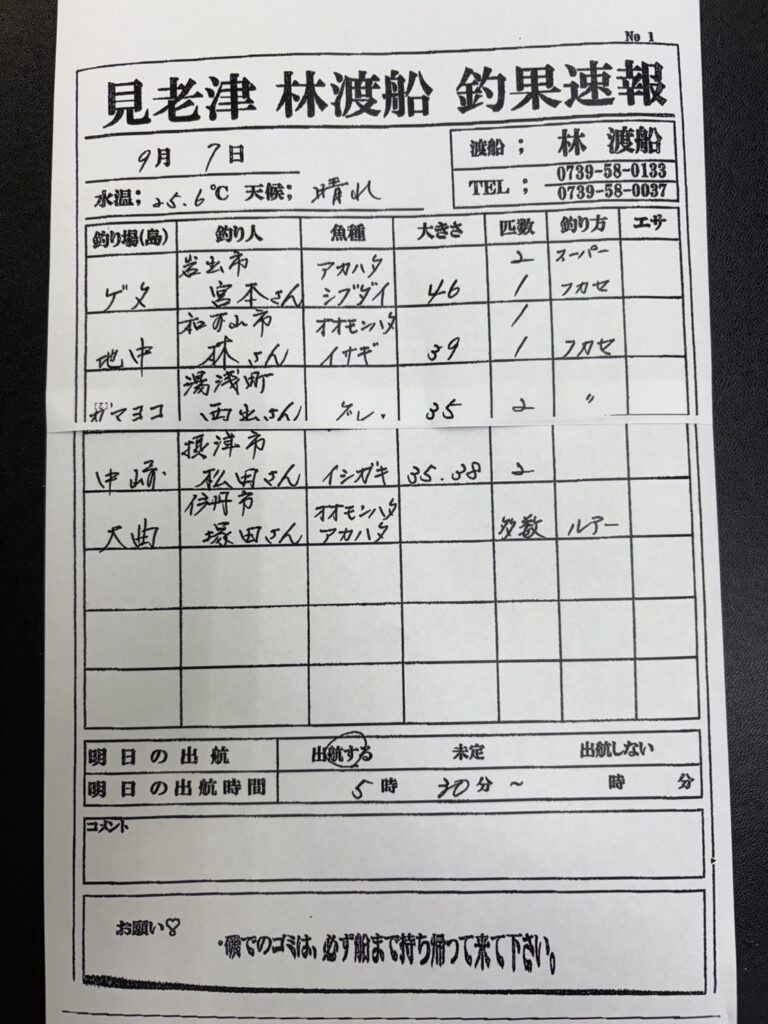 No 1
見老津 林渡船 釣果速報
9月 7日
渡船； 林 渡船
水温；25.6℃ 天候；晴れ
TEL； 0739-58-0133
0739-58-0037
釣り場(島) 釣り人 魚種 大きさ 匹数 釣り方 エサ
岩出市 アカハタ 2 スーパー
ゲタ 宮本さん シブダイ 46 1 フカセ
和可山市 オオモンハタ 1
地中 林さん イサギ 39 1 フカセ
湯浅町
ガマヨコ 西出さん グレ. 35 2 〃
摂津市
中崎 松田さん イシガキ 35.38 2
伊丹市 オオモンハタ
大曲 塚田さん アカハタ 多数 ルアー
明日の出航 出航する 未定 出航しない
明日の出航時間 5時 20分 ～ 時 分
コメント
お願い♡
・磯でのゴミは、必ず船まで持ち帰って来て下さい。